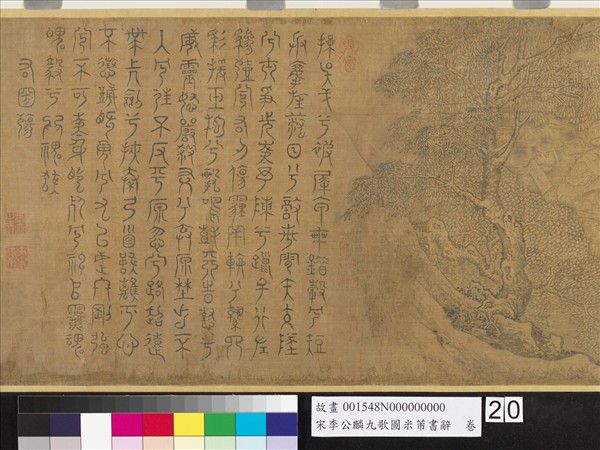 操吳戈兮被犀甲車錯轂兮短
兵接旌蔽日兮敵若雲矢交墜
兮士爭先凌余陣兮躐余行左
驂殪兮右刃傷霾兩輪兮縶四
馬援玉枹兮擊鳴鼓天時懟兮
威靈怒嚴殺盡兮棄原野出不
入兮往不反平原忽兮路超遠
帶長劍兮挾秦弓首雖離兮心
不懲誠既勇兮又以武終剛強
兮不可凌身既死兮神以靈魂
魄毅兮為鬼雄
右國殤
故畫 001548N000000000
宋李公麟九歌圖米芾書辭 卷
20